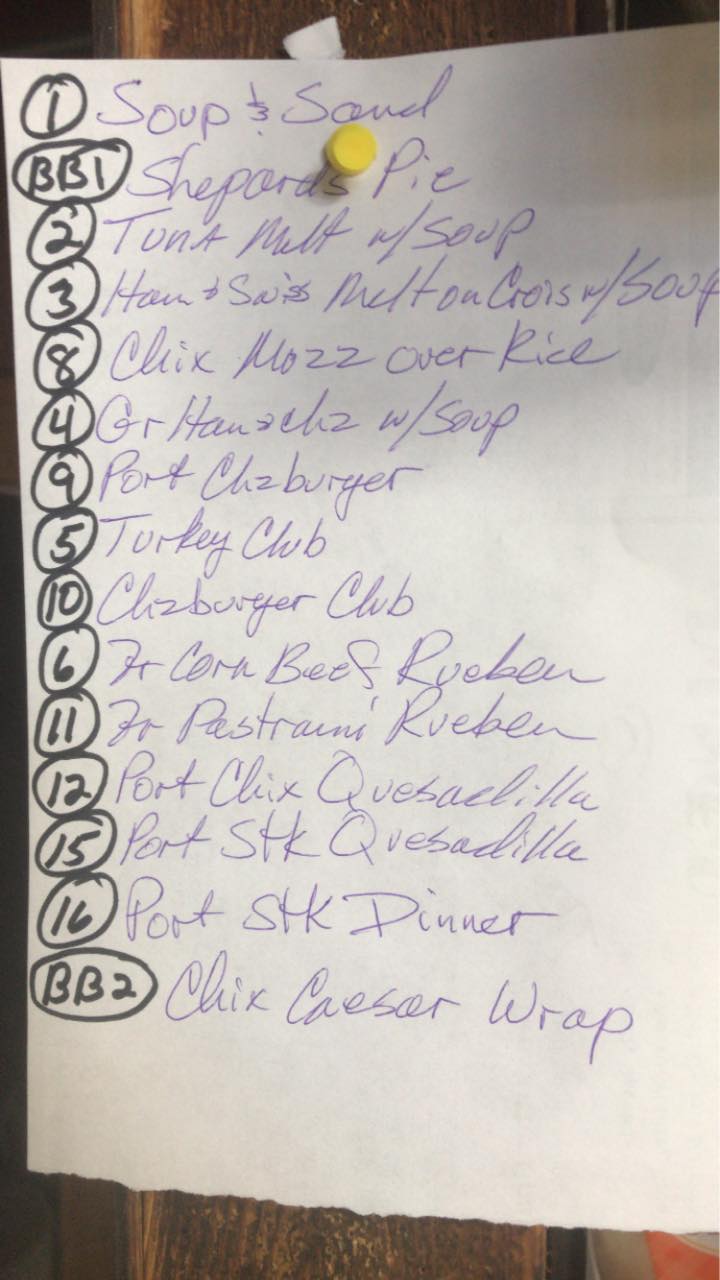 1 Soup & Sand
BB1 Shepards Pie
2 Tuna Melt w/Soup
3 Ham & Swiss Melt on Crois w/Soup
8 Chix Mozz over Rice
4 Gr Ham & chz w/Soup
9 Port Chzburger
5 Turkey Club
10 Chzburger Club
6 Gr Corn Beef Rueben
11 Gr Pastrami Rueben
12 Port Chix Quesadilla
15 Port Stk Quesadilla
16 Port Stk Dinner
BB2 Chix Caesar Wrap